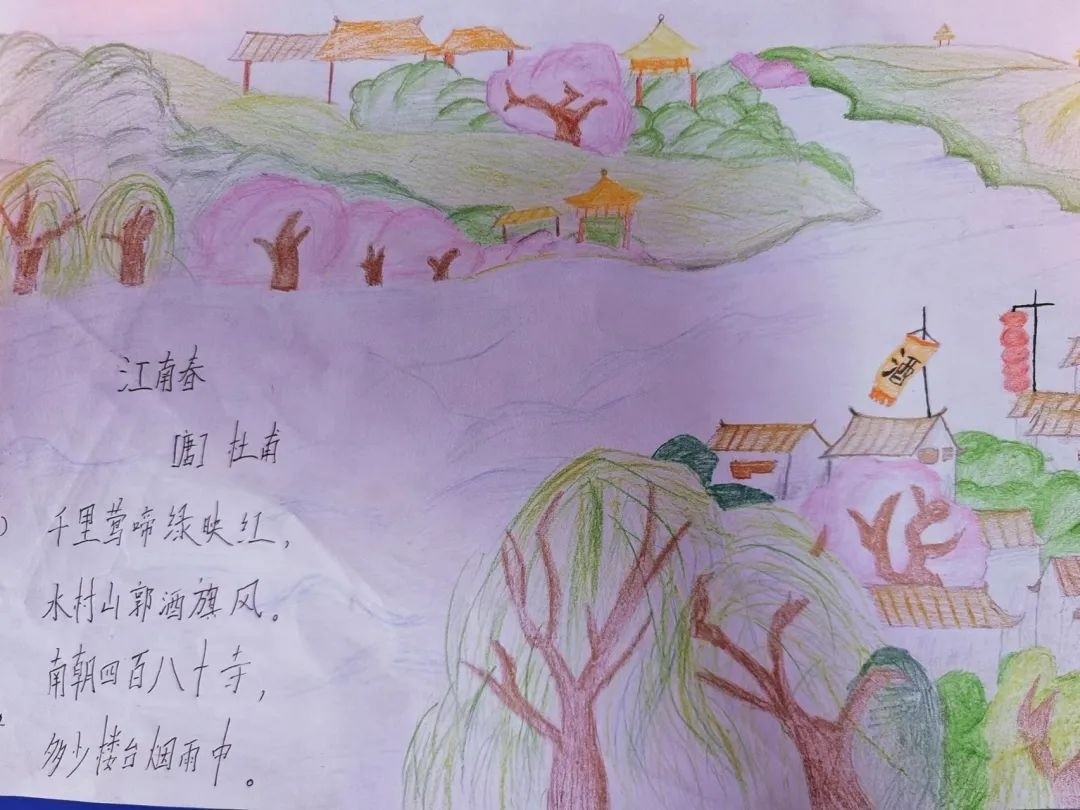 酒
江南春
[唐] 杜甫
千里莺啼绿映红，
水村山郭酒旗风。
南朝四百八十寺，
多少楼台烟雨中。